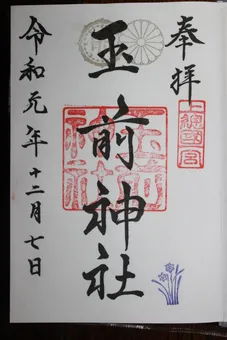 奉拝
上総国一宮
玉前神社
令和元年十二月七日